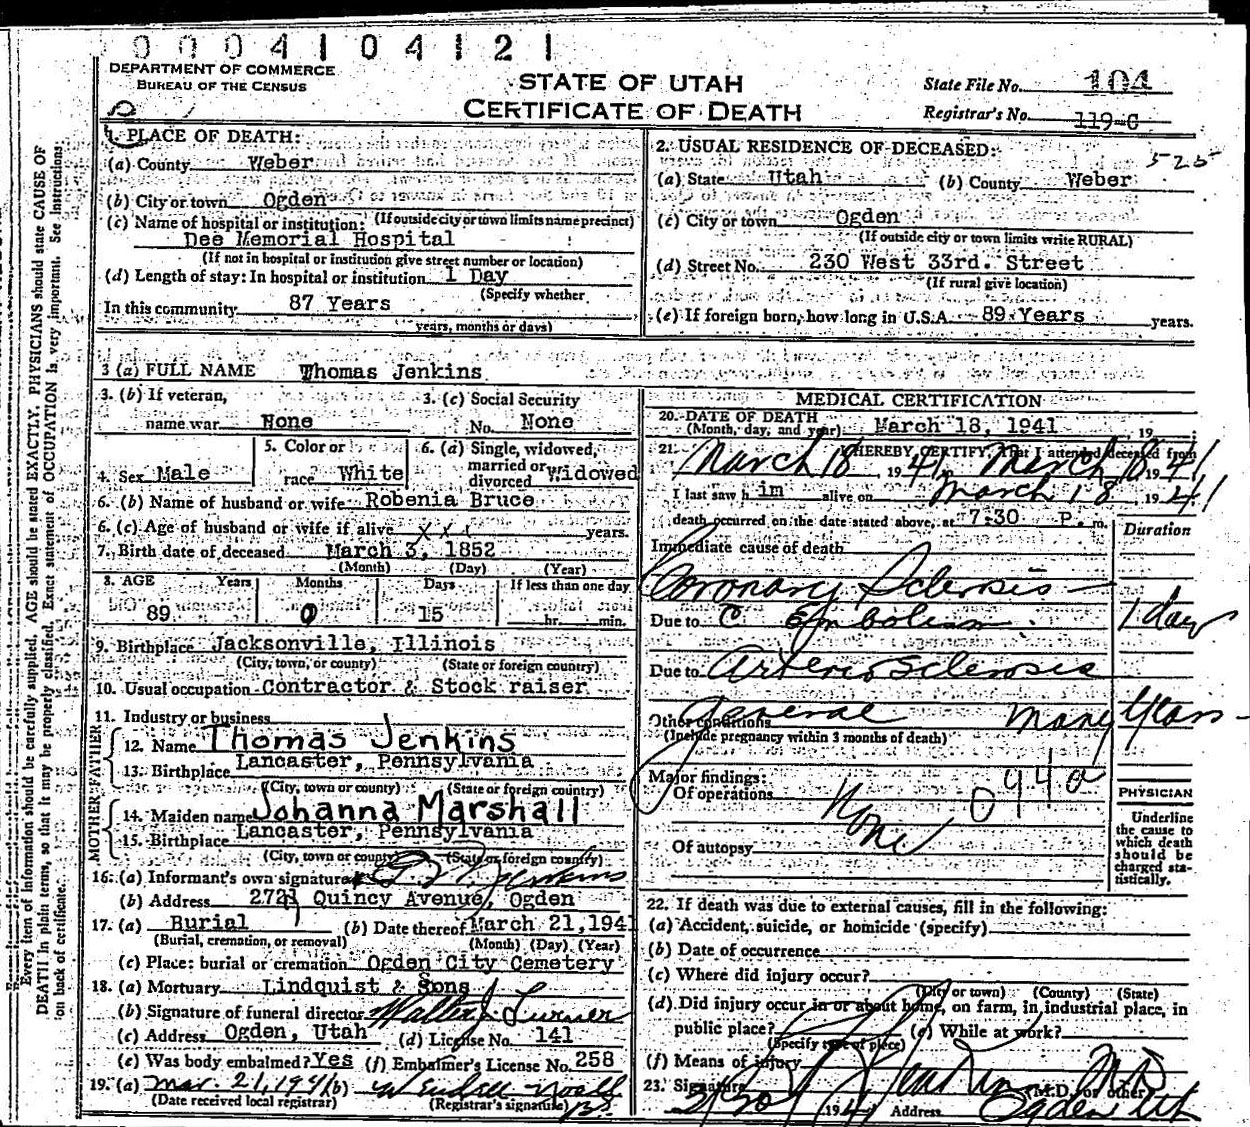 0004104121
DEPARTMENT OF COMMERCE
BUREAU OF THE CENSUS
STATE OF UTAH
CERTIFICATE OF DEATH
State File No. 104
Registrar's No. 119-C
1. PLACE OF DEATH:
(a) County Weber
(b) City or town Ogden
(If outside city or town limits name precinct)
(c) Name of hospital or institution:
Dee Memorial Hospital
(If not in hospital or institution give street number or location)
(d) Length of stay: In hospital or institution 1 Day
(Specify whether
In this community 87 Years
years, months or days)
2. USUAL RESIDENCE OF DECEASED: 525
(a) State Utah (b) County Weber
(c) City or town Ogden
(If outside city or town limits write RURAL)
(d) Street No. 230 West 33rd. Street
(If rural give location)
(e) If foreign born, how long in U.S.A. 89 Years years.
3 (a) FULL NAME Thomas Jenkins
3. (b) If veteran,
name war None
3. (c) Social Security
No. None
4. Sex Male
5. Color or
race White
6. (a) Single, widowed,
married or
divorced Widowed
6. (b) Name of husband or wife Robenia Bruce
6. (c) Age of husband or wife if alive xxx years.
7. Birth date of deceased March 3, 1852
(Month) (Day) (Year)
8. AGE Years Months Days If less than one day
89 0 15 hr. min.
9. Birthplace Jacksonville, Illinois
(City, town, or county) (State or foreign country)
10. Usual occupation Contractor & Stock raiser
11. Industry or business
FATHER
12. Name Thomas Jenkins
13. Birthplace Lancaster, Pennsylvania
(City, town or county) (State or foreign country)
MOTHER
14. Maiden name Johanna Marshall
15. Birthplace Lancaster, Pennsylvania
(City, town or county) (State or foreign country)
16. (a) Informant's own signature Jenkins
(b) Address 2721 Quincy Avenue, Ogden
17. (a) Burial (b) Date thereof March 21, 1941
(Burial, cremation, or removal) (Month) (Day) (Year)
(c) Place: burial or cremation Ogden City Cemetery
18. (a) Mortuary Lindquist & Sons
(b) Signature of funeral director Walter J.
(c) Address Ogden, Utah (d) License No. 141
(e) Was body embalmed? Yes (f) Embalmer's License No. 258
19. (a) Mar. 21, 1941 (b)
(Date received local registrar) (Registrar's signature)
MEDICAL CERTIFICATION
20. DATE OF DEATH
(Month, day, and year) March 18, 1941, 19
21. I HEREBY CERTIFY, That I attended deceased from
March 18 1941 to March 18 1941
I last saw h im alive on March 18 1941
death occurred on the date stated above, at 7:30 P. m.
Duration
Immediate cause of death
Coronary Sclerosis
Due to C Embolism 1 day
Due to Arterio sclerosis
Other conditions general many years
(Include pregnancy within 3 months of death)
Major findings: 094a
Of operations None
Of autopsy
PHYSICIAN
Underline
the cause to
which death
should be
charged sta-
tistically.
22. If death was due to external causes, fill in the following:
(a) Accident, suicide, or homicide (specify)
(b) Date of occurrence
(c) Where did injury occur?
(City or town) (County) (State)
(d) Did injury occur in or about home, on farm, in industrial place, in
public place? (e) While at work?
(Specify type of place)
(f) Means of injury
23. Signature M D
(M.D. or other)
1941 Address Ogden Ut
Every item of information should be carefully supplied. AGE should be stated EXACTLY. PHYSICIANS should state CAUSE OF
DEATH in plain terms, so that it may be properly classified. Exact statement of OCCUPATION is very important. See Instructions
on back of certificate.